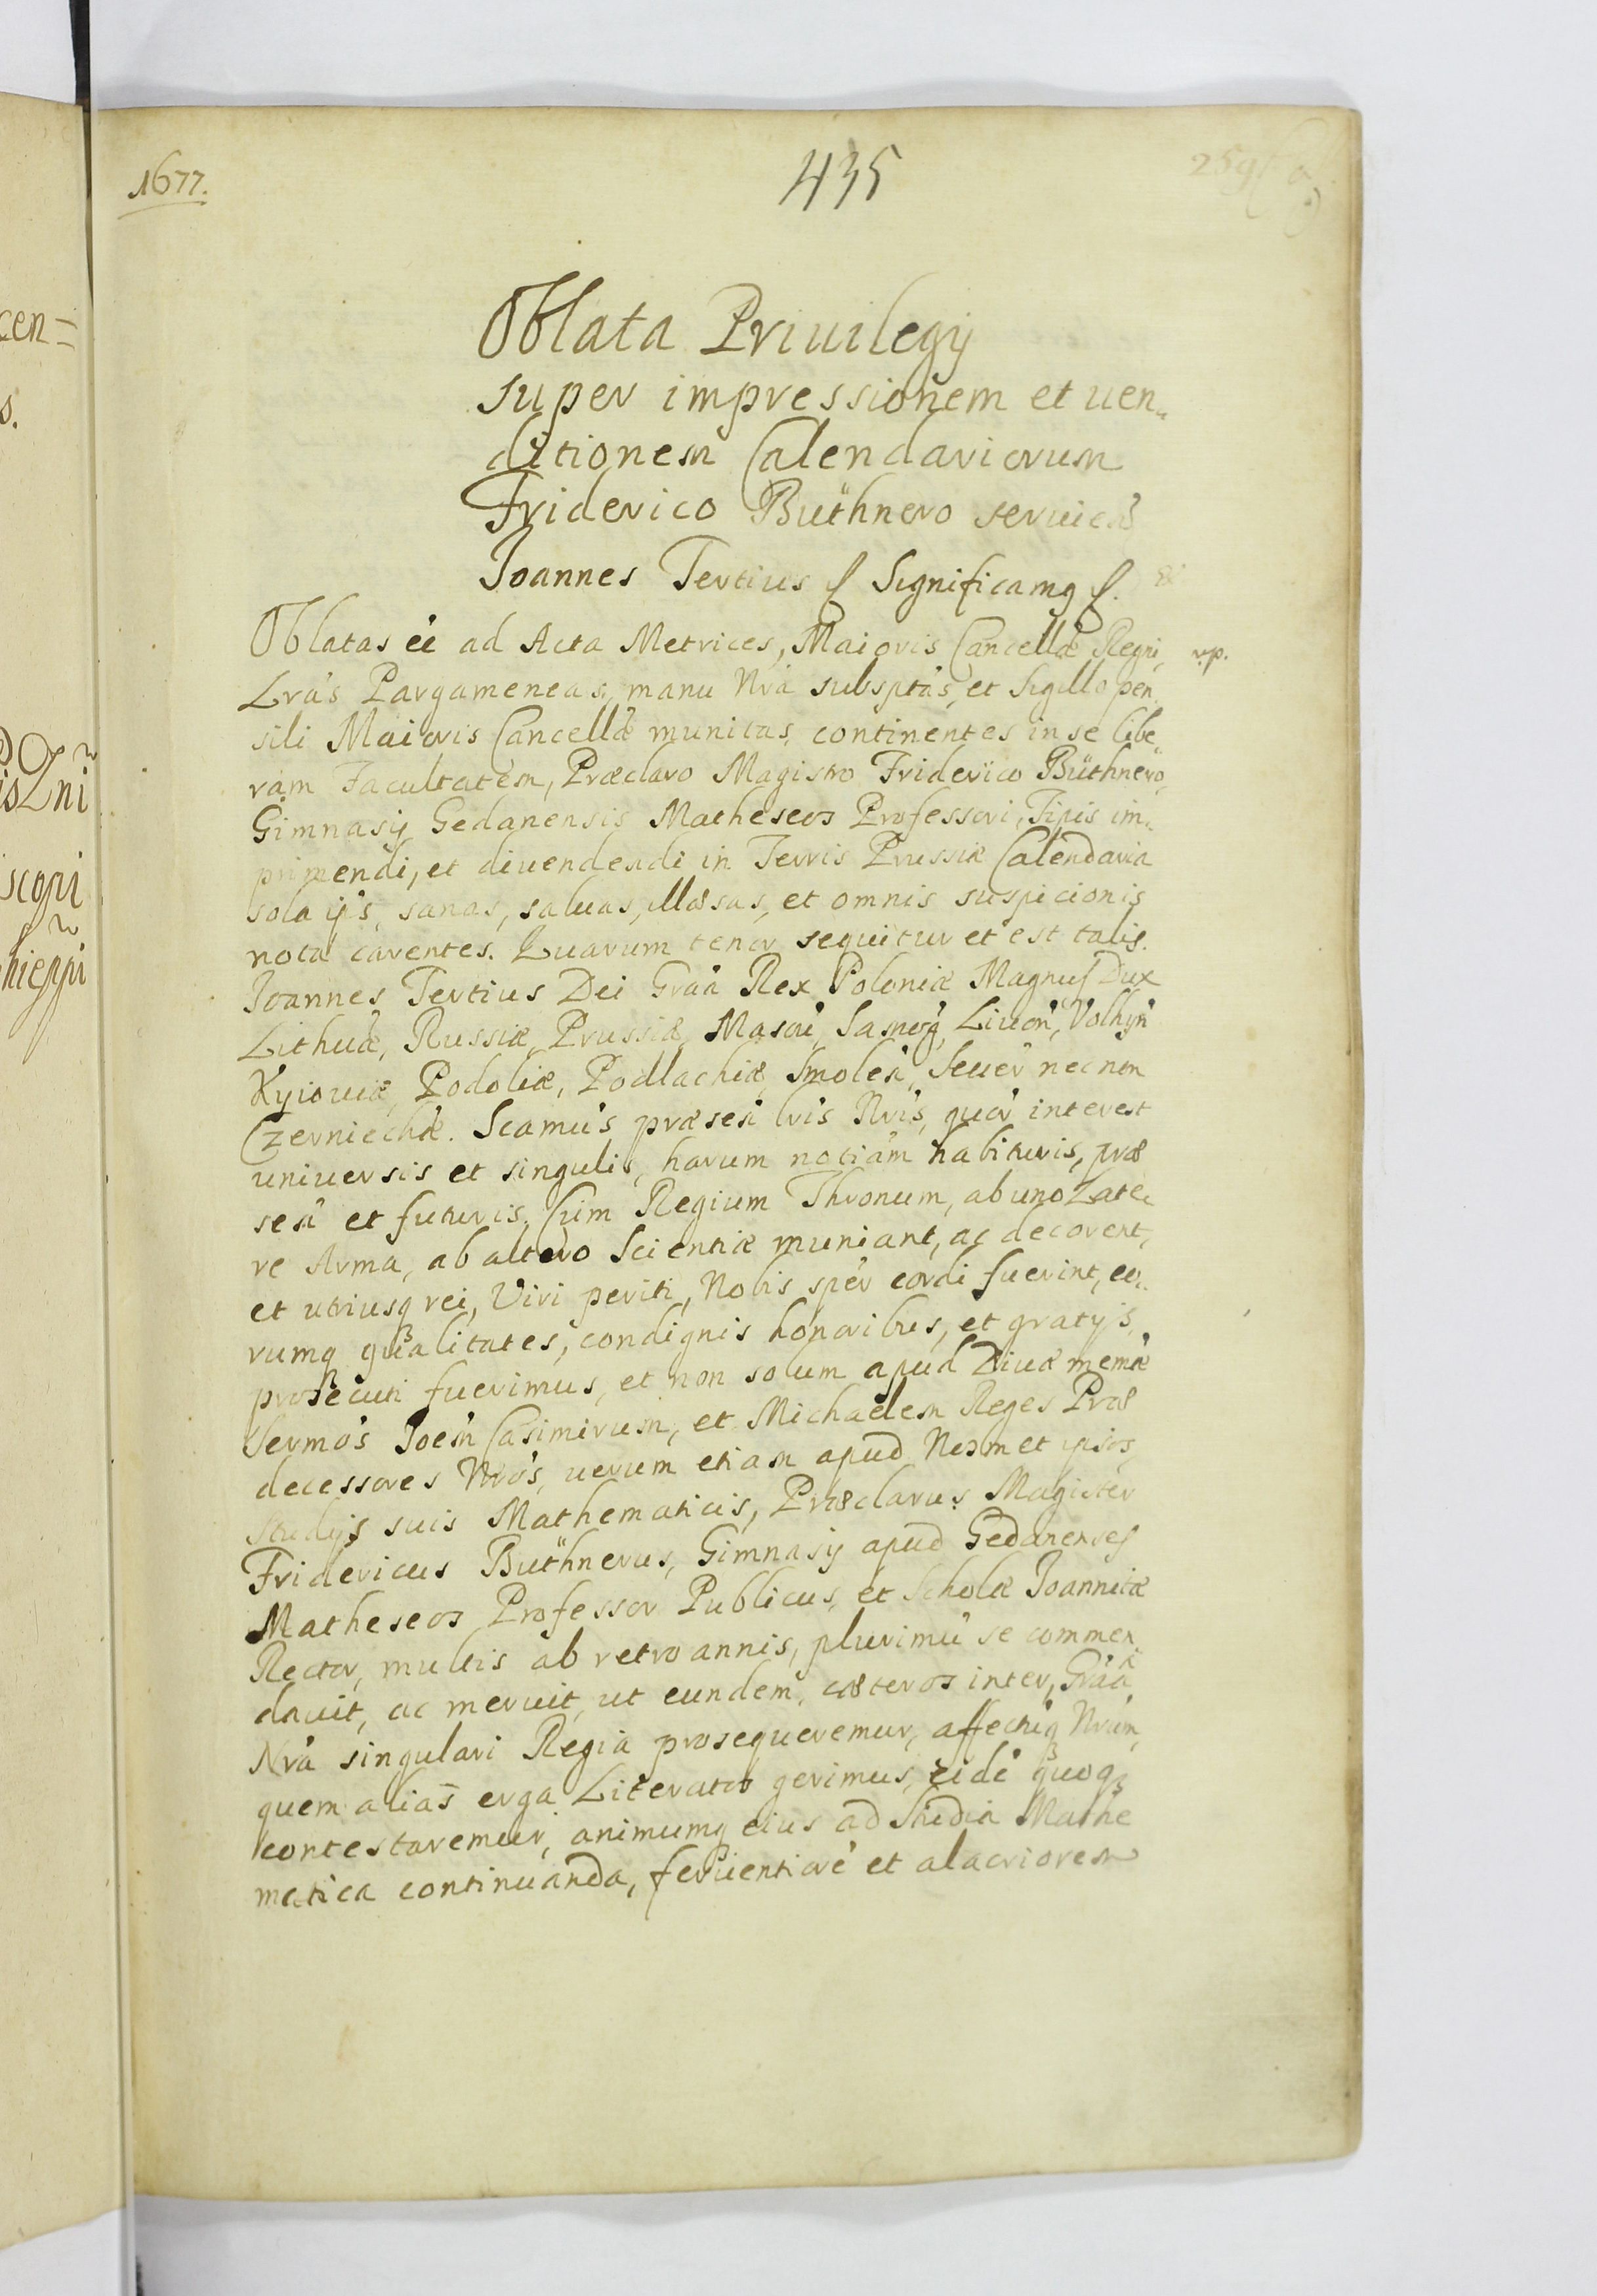 1677.
435
Oblata Priuilegij
super impressionem et uen„
ditionem Calendariorum
Friderico Büthnero seruień
Joannes Tertius &c Significamq &c.
Oblatas eé ad Acta Metrices, Maioris Cancellæ Regni, rp.
Lrás Pargameneas, manu Nrá subsptás, et Sigillo pen„
sili Maioris Cancellæ munitas, continentes in se libe„
ram Facultatem, Præclaro Magistro Friderico Büthnero,
Gimnasij Gedanensis Matheseos Professori, Tipis im„
primendi, et diuendendi in Terris Prussiæ Calendaria
sola ijs, sanas, saluas, illæsas, et omnis suspicionis
nota carentes. Quarum tenor sequitur et est talis.
Joannes Tertius Dei Gráá Rex Poloniæ Magnus Dux
Lithuæ, Russiæ, Prussiæ, Masoú, Samog, Liuoń, Volhyń
Kyiouiæ, Podoliæ, Podlachiæ, Smoleń, Seuer necnon
Czerniechæ. Scamús præseń lris Nris, quór interest
uniuersis et singulis, harum notiám habituris, præ
seń et futuris. Cúm Regium Thronum, ab uno Late„
re Arma, ab altero Scientiæ muniant, ac decorent,
et utriusq rei, Viri periti, Nobis spér cordi fuerint, eo„
rumq qualitates, condignis honoribus, et gratijs
prosecuti fuerimus, et non solum apud Diuæ memæ
Sermós Joeḿ Casimirum, et Michaelem Reges Præ
decessores Nrós, uerum etiam apud Nosmet ipsos,
Studijs suis Mathematicis, Præclarus Magister
Fridericus Büthnerus, Gimnasij apud Gedanenses
Matheseos Professor Publicus, et Scholæ Joannitæ
Rector, multis ab retro annis, plurimú se commen
dauit, ac meruit, ut eundem, cæteros inter, Gráá
Nrá singulari Regia prosequeremur, affectúq Nrúm,
quem alias erga Literatos gerimus, eidé quoq
contestaremur, animumq eius ad Studia Mathe
matica continuanda, feruentioré et alacriorem